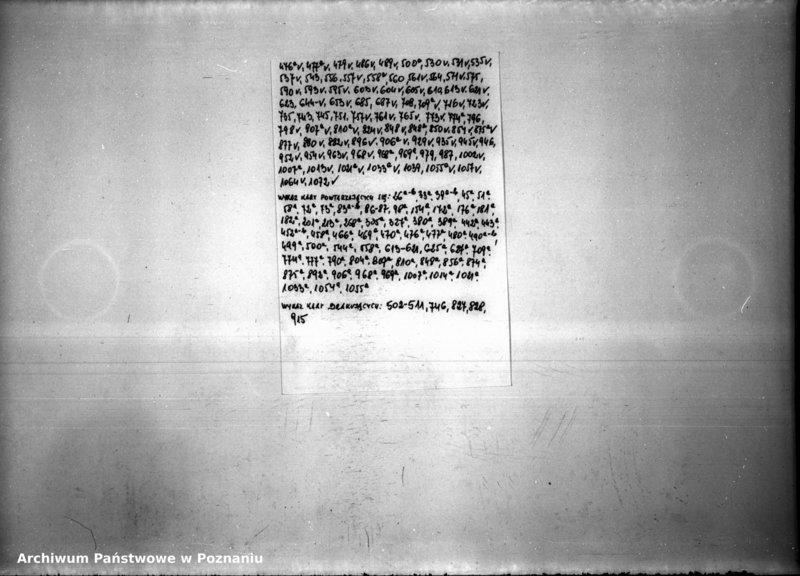 476ᵃv, 477ᵃv, 479v, 486v, 489v, 500ᵃ, 530v, 531v, 535v,
537v, 543, 556, 557v, 558ᵃ, 560, 561v, 564, 571v, 575,
590v, 593v, 595v, 603v, 604v, 605v, 610, 613v, 621v,
623, 644-v, 653v, 685, 687v, 708, 709ᵃv, 716v, 723v,
735, 743, 745, 751, 757v, 761v, 765v, 773v, 774ᵃ, 796,
798v, 807ᵃv, 810ᵃv, 824v, 848v, 848ᵃ, 850v, 854v, 875ᵃv
877v, 880v, 882v, 896v, 906ᵃv, 929v, 935v, 945v, 946,
952v, 954v, 963v, 968v, 968ᵃ, 969ᵃ, 979, 987, 1002v,
1007ᵃ, 1013v, 1021ᵃv, 1033ᵃv, 1039, 1055ᵃv, 1057v,
1064v, 1072v
WYKAZ KART POWTARZAJĄCYCH SIĘ: 26ᵃ⁻ᵇ, 33ᵃ, 39ᵃ⁻ᵇ, 45ᵃ, 51ᵃ
58ᵃ, 72ᵃ, 73ᵃ, 83ᵃ⁻ᵇ, 86-87, 98ᵃ, 154ᵃ, 172ᵃ, 176ᵃ, 181ᵃ
182ᵃ, 201ᵃ, 213ᵃ, 268ᵃ, 305ᵃ, 327ᵃ, 380ᵃ, 389ᵃ, 442ᵃ, 443ᵃ
452ᵃ⁻ᵇ, 458ᵃ, 466ᵃ, 469ᵃ, 470ᵃ, 476ᵃ, 477ᵃ, 480ᵃ, 490ᵃ⁻ᵇ
499ᵃ, 500ᵃ, 544ᵃ, 558ᵃ, 613-621, 625ᵃ, 687ᵃ, 709ᵃ,
774ᵃ, 777ᵃ, 790ᵃ, 804ᵃ, 807ᵃ, 810ᵃ, 848ᵃ, 856ᵃ, 874ᵃ,
875ᵃ, 892ᵃ, 906ᵃ, 968ᵃ, 969ᵃ, 1007ᵃ, 1014ᵃ, 1021ᵃ
1033ᵃ, 1054ᵃ, 1055ᵃ
WYKAZ KART BRAKUJĄCYCH: 502-511, 746, 827, 828,
915
Archiwum Państwowe w Poznaniu